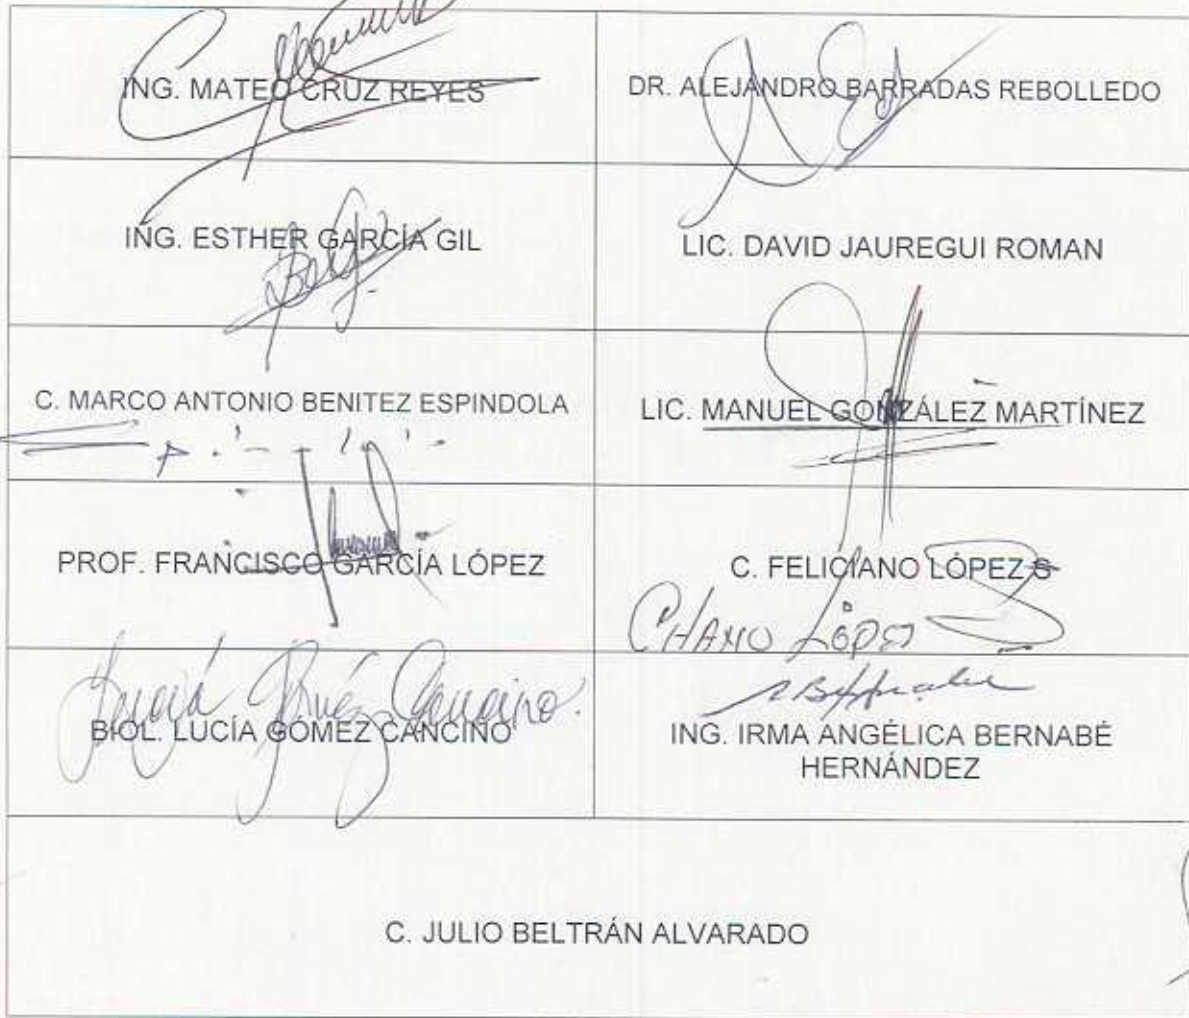 ING. MATEO CRUZ REYES
DR. ALEJANDRO BARRADAS REBOLLEDO
ING. ESTHER GARCÍA GIL
LIC. DAVID JAUREGUI ROMAN
C. MARCO ANTONIO BENITEZ ESPINDOLA
LIC. MANUEL GONZÁLEZ MARTÍNEZ
PROF. FRANCISCO GARCÍA LÓPEZ
C. FELICIANO LÓPEZ S
CHANO LÓPEZ
Lucía Gómez Cancino.
BIOL. LUCÍA GÓMEZ CANCINO
ING. IRMA ANGÉLICA BERNABÉ
HERNÁNDEZ
C. JULIO BELTRÁN ALVARADO